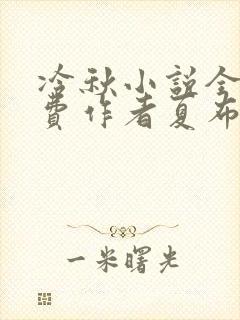 冷秋小説全
費作者夏布
一米曙光